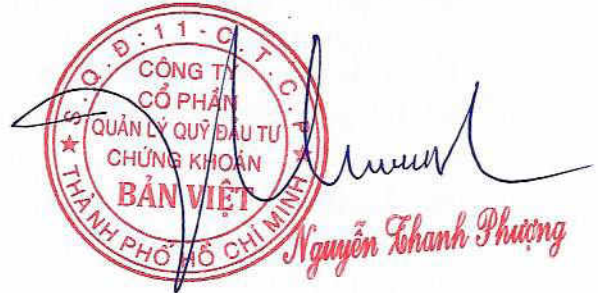 S.Q.Đ:11-C.T.C.P
CÔNG TY
CỔ PHẦN
QUẢN LÝ QUỸ ĐẦU TƯ
CHỨNG KHOÁN
BẢN VIỆT
THÀNH PHỐ HỒ CHÍ MINH
Nguyễn Thanh Phượng